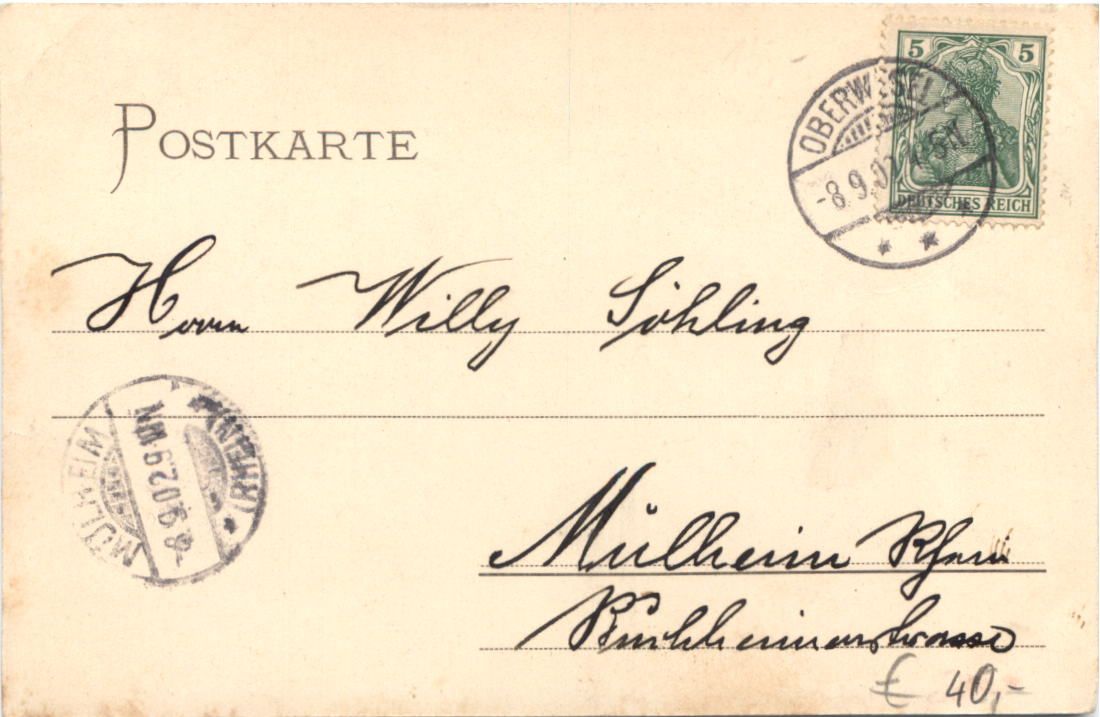 POSTKARTE
5 5
DEUTSCHES REICH
OBERWESEL
-8.9.02
Herrn Willy Söhling
MÜLHEIM
-8.9.02.9-10N
(RHEIN)
Mülheim Rhein
Buchheimerstrasse
€ 40,-